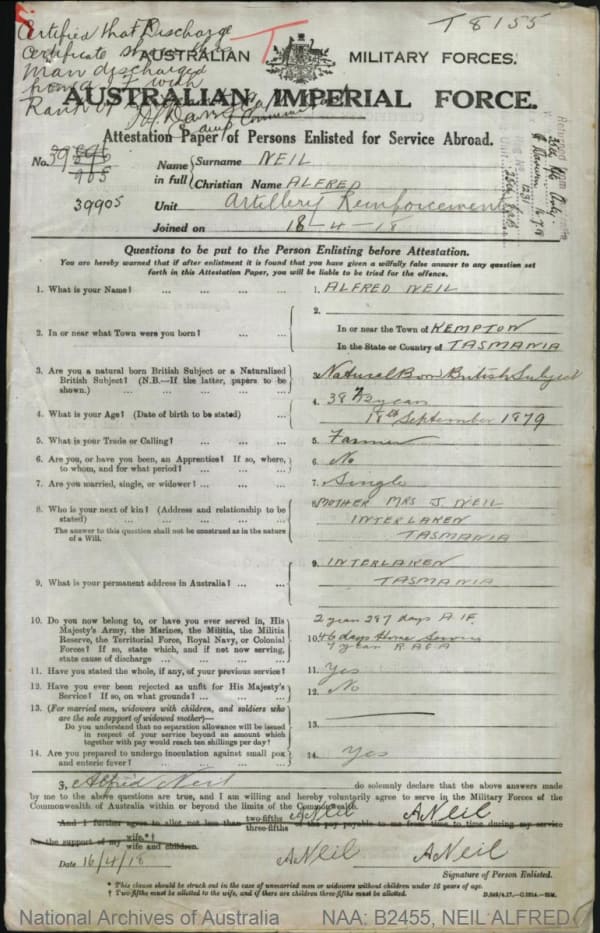 Certified that Discharge
Certificate shows this
man discharged
from A.I.F. with
Rank of
T
T 8155
AUSTRALIAN MILITARY FORCES.
AUSTRALIAN IMPERIAL FORCE.
Attestation Paper of Persons Enlisted for Service Abroad.
No. 39905
Name in full { Surname NEIL
Christian Name ALFRED
Unit Artillery Reinforcements
Joined on 18-4-18
Questions to be put to the Person Enlisting before Attestation.
You are hereby warned that if after enlistment it is found that you have given a wilfully false answer to any question set
forth in this Attestation Paper, you will be liable to be tried for the offence.
1. What is your Name? ... ... ... ... 1. ALFRED NEIL
2. In or near what Town were you born? ... ... 2. In or near the Town of KEMPTON
In the State or Country of TASMANIA
3. Are you a natural born British Subject or a Naturalized
British Subject? (N.B.—If the latter, papers to be
shown.) ... ... ... ... 3. Natural Born British Subject
4. What is your Age? (Date of birth to be stated) ... 4. 38 7/12 years
18th September 1879
5. What is your Trade or Calling? ... ... ... 5. Farmer
6. Are you, or have you been, an Apprentice? If so, where,
to whom, and for what period? ... ... ... 6. No
7. Are you married, single, or widower? ... ... ... 7. Single
8. Who is your next of kin? (Address and relationship to be
stated) ... ... ... ...
The answer to this question shall not be construed as in the nature
of a Will.
8. MOTHER MRS J. NEIL
INTERLAKEN
TASMANIA
9. What is your permanent address in Australia? ... ... 9. INTERLAKEN
TASMANIA
10. Do you now belong to, or have you ever served in, His
Majesty's Army, the Marines, the Militia, the Militia
Reserve, the Territorial Force, Royal Navy, or Colonial
Forces? If so, state which, and if not now serving,
state cause of discharge ... ... ...
2 year 287 days A.I.F.
10. 46 days Home Service
1 year R.A.G.A
11. Have you stated the whole, if any, of your previous service? 11. Yes
12. Have you ever been rejected as unfit for His Majesty's
Service? If so, on what grounds? ... ... 12. No
13. (For married men, widowers with children, and soldiers who
are the sole support of widowed mother)—
Do you understand that no separation allowance will be issued
in respect of your service beyond an amount which
together with pay would reach ten shillings per day?
13.
14. Are you prepared to undergo inoculation against small pox
and enteric fever? ... ... ... 14. Yes
I, Alfred Neil do solemnly declare that the above answers made
by me to the above questions are true, and I am willing and hereby voluntarily agree to serve in the Military Forces of the
Commonwealth of Australia within or beyond the limits of the Commonwealth.
And I further agree to allot not less than two-fifths three-fifths of the pay payable to me from time to time during my service
for the support of my wife.*† wife and children.
ANeil ANeil
ANeil ANeil
Date 16/4/18
Signature of Person Enlisted.
* This clause should be struck out in the case of unmarried men or widowers without children under 16 years of age.
† Two-fifths must be allotted to the wife, and if there are children three-fifths must be allotted.
National Archives of Australia NAA: B2455, NEIL ALFRED